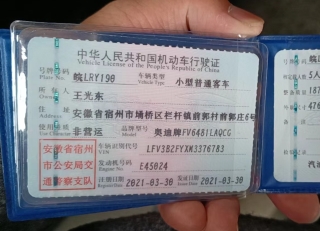 中华人民共和国机动车行驶证
Vehicle License of the People's Republic of China
号牌号码 皖LRY190 车辆类型 小型普通客车
Plate No. Vehicle Type
所有人 王光东
Owner
住址 安徽省宿州市埇桥区栏杆镇前郭村前郭庄6号
Address
使用性质 非营运 品牌型号 奥迪牌FV6481LAQCG
Use Character Model
安徽省宿州
市公安局交
通警察支队
车辆识别代号 LFV3B2FYXM3376783
VIN
发动机号码 E45024
Engine No.
注册日期 2021-03-30 发证日期 2021-03-30
Register Date Issue Date
号牌号码